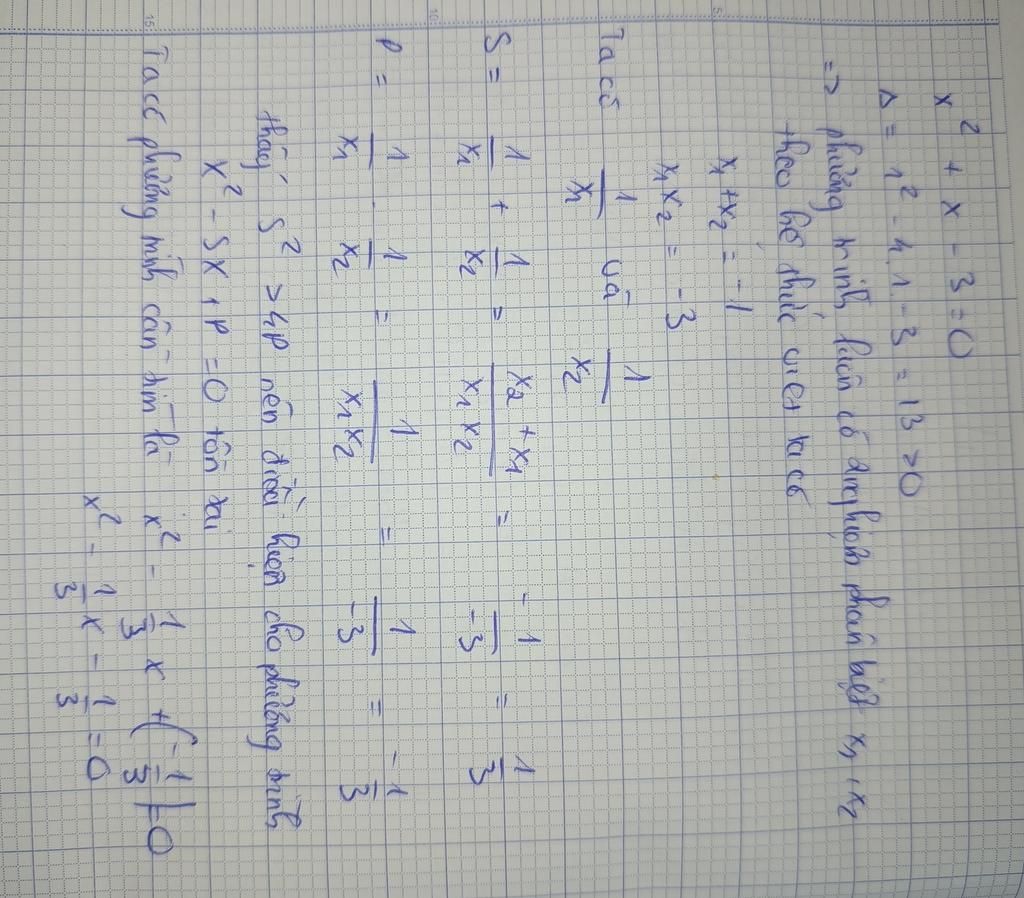 x² + x - 3 = 0
Δ = 1² - 4.1.-3 = 13 > 0
=> phương trình luôn có 2 nghiệm phân biệt x₁, x₂
theo hệ thức viet ta có
x₁ + x₂ = -1
x₁x₂ = -3
Ta có 1/x₁ và 1/x₂
S = 1/x₁ + 1/x₂ = (x₂ + x₁)/(x₁x₂) = -1/-3 = 1/3
P = 1/x₁ . 1/x₂ = 1/(x₁x₂) = 1/-3 = -1/3
thấy S² > 4P nên điều kiện cho phương trình
x² - Sx + P = 0 tồn tại
Ta có phương trình cần tìm là x² - 1/3 x + (-1/3) = 0
x² - 1/3 x - 1/3 = 0
5
10
15